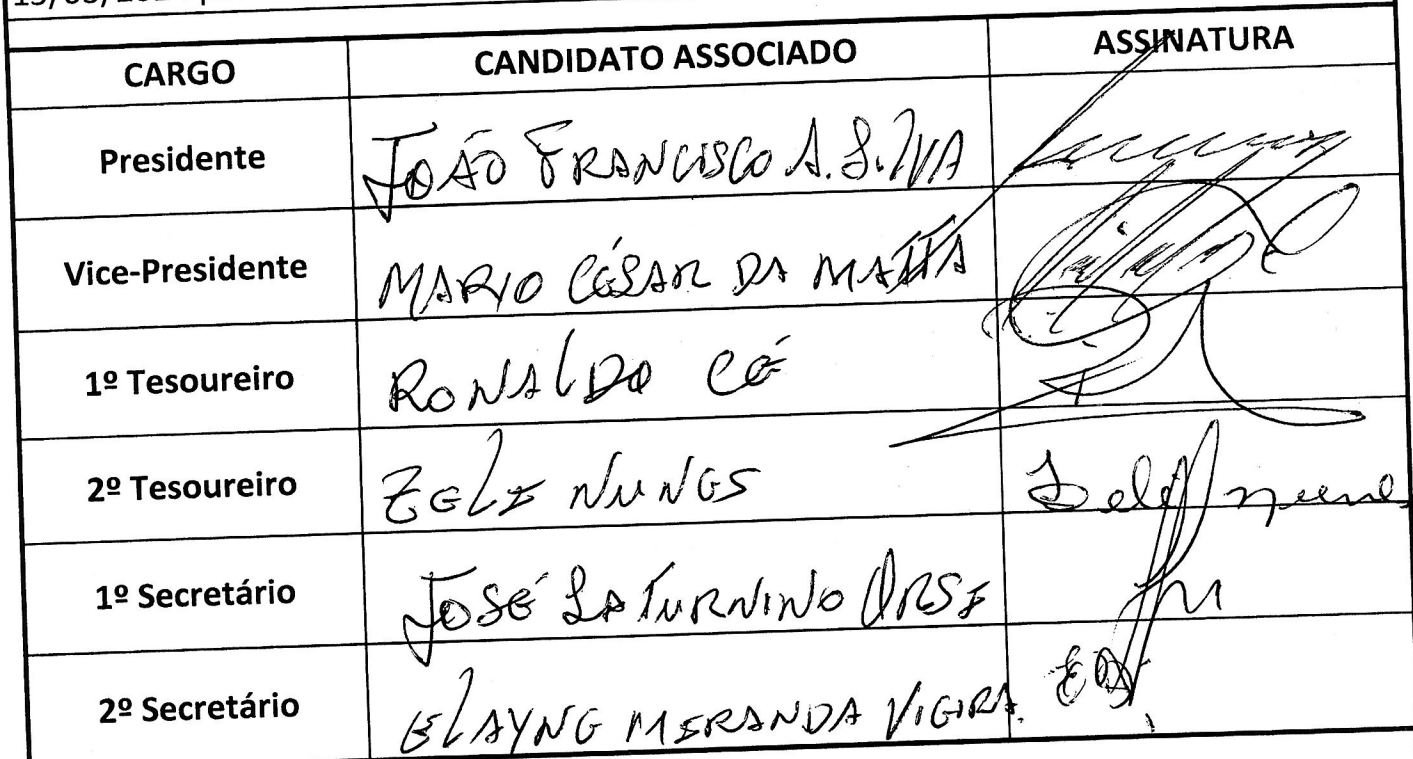 CARGO CANDIDATO ASSOCIADO ASSINATURA
Presidente JOÃO FRANCISCO A. SILVA
Vice-Presidente MARIO CÉSAR DA MATTA
1º Tesoureiro RONALDO CÉ
2º Tesoureiro ZELI NUNES Zeli Nunes
1º Secretário JOSÉ SATURNINO ORSI
2º Secretário ELAYNE MIRANDA VIEIRA